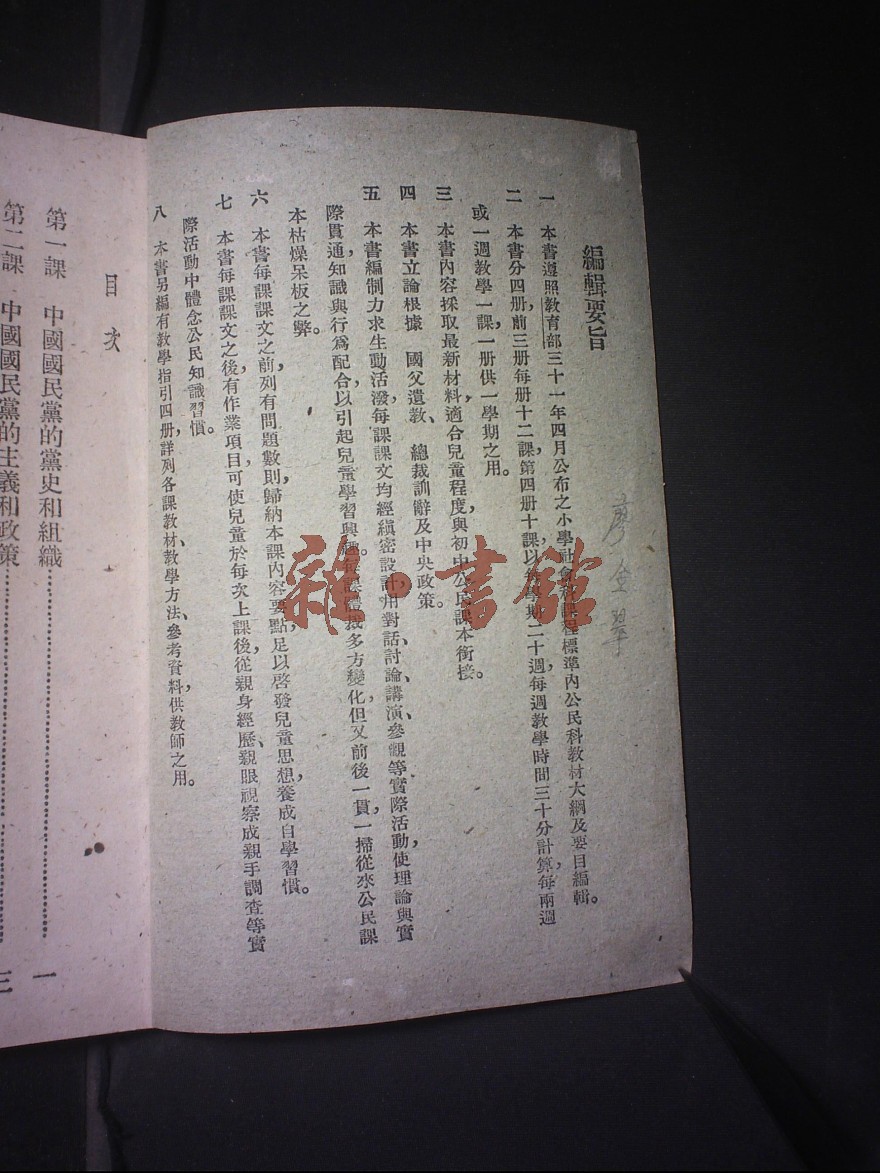 編輯要旨
一 本書遵照教育部三十一年四月公布之小學社會科課程標準內公民科教材大綱及要目編輯。
二 本書分四册，前三册每册十二課，第四册十課，以每學期二十週，每週教學時間三十分計算，每兩週
或一週教學一課，一册供一學期之用。
三 本書內容採取最新材料，適合兒童程度，與初中公民課本銜接。
四 本書立論根據 國父遺教、 總裁訓辭及中央政策。
五 本書編制力求生動活潑，每課課文均經縝密設計，用對話、討論、講演、參觀等實際活動，使理論與實
際貫通，知識與行爲配合，以引起兒童學習興趣。每課體裁多方變化，但又前後一貫，一掃從來公民課
本枯燥呆板之弊。
六 本書每課課文之前，列有問題數則，歸納本課內容要點，足以啓發兒童思想，養成自學習慣。
七 本書每課課文之後，有作業項目，可使兒童於每次上課後，從親身經歷、親眼視察或親手調查等實
際活動中，體念公民知識習慣。
八 本書另編有教學指引四册，詳列各課教材、教學方法、參考資料，供教師之用。
廖金翠
雜·書館
目 次
第一課 中國國民黨的黨史和組織…………一
第二課 中國國民黨的主義和政策…………三